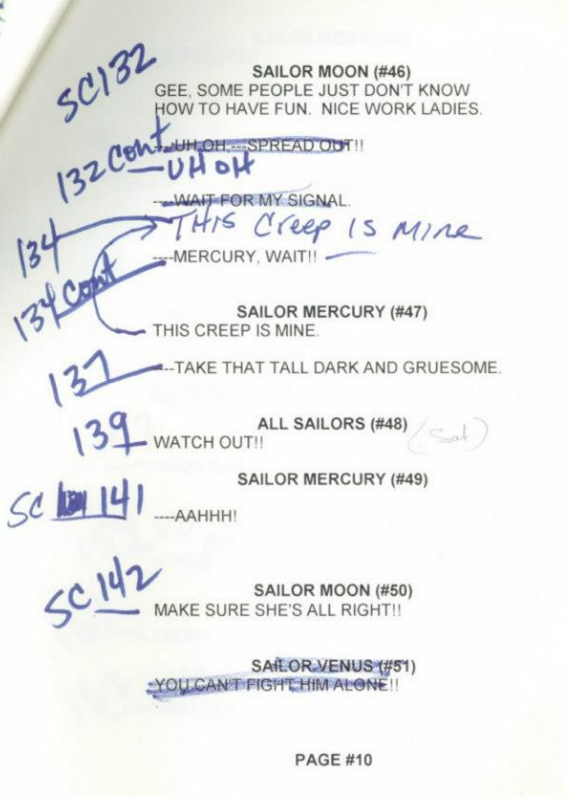 SC132
SAILOR MOON (#46)
GEE, SOME PEOPLE JUST DON'T KNOW
HOW TO HAVE FUN. NICE WORK LADIES.
----UH OH,---SPREAD OUT!!
132 Cont
UH OH
----WAIT FOR MY SIGNAL.
134
THIS Creep IS Mine
----MERCURY, WAIT!!
134 Cont
SAILOR MERCURY (#47)
THIS CREEP IS MINE.
137
----TAKE THAT TALL DARK AND GRUESOME.
139
ALL SAILORS (#48)
(Sat)
WATCH OUT!!
SAILOR MERCURY (#49)
SC 141
----AAHHH!
SC 142
SAILOR MOON (#50)
MAKE SURE SHE'S ALL RIGHT!!
SAILOR VENUS (#51)
YOU CAN'T FIGHT HIM ALONE!!
PAGE #10